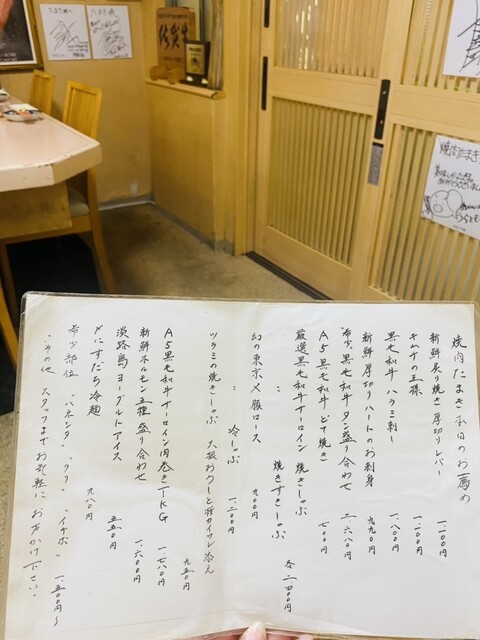 焼肉たまき本日のお薦め
新鮮炙り焼き厚切りレバー 一、二〇〇円
キムチの王様 一、一〇〇円
黒毛和牛ハラミ刺し 一、八〇〇円
新鮮厚切りハートのお刺身 九九〇円
希少黒毛和牛タン盛り合わせ 二、六八〇円
A5黒毛和牛ビフ焼き 七〇〇円
厳選黒毛和牛サーロイン 焼きしゃぶ
〃 焼きすきしゃぶ 各二、四〇〇円
幻の東京X豚ロース 九〇〇円
〃 冷しゃぶ 一、二〇〇円
ツラミの焼きしゃぶ 大根おろしと貝割れ添え 九五〇円
A5黒毛和牛サーロイン肉巻きTKG 一、七八〇円
新鮮ホルモン五種盛り合わせ 一、六〇〇円
淡路島ヨーグルトアイス 五五〇円
〆にすだち冷麺 九八〇円
希少部位 クリ イチボ 一、五〇〇円〜
その他 スタッフまでお気軽にお声かけ下さい。
焼肉たまき